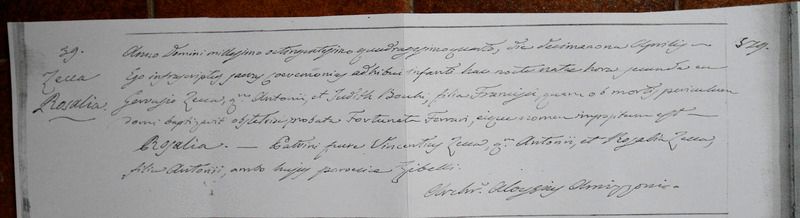 39.
Zecca
Rosalia.
Anno Domini millesimo octingentesimo quadragesimoquarto, die decimanona Aprilis —
Ego infrascriptus sacras cæremonias adhibui infanti hac nocte natæ hora secunda ex
Gervasio Zecca, qm Antonii, et Judith filia Francisci quam ob mortis periculum
domi baptizavit obstetrix probata Fortunata Ferrari, eique nomen impositum est —
Rosalia. — Patrini fuere Vincentius Zecca, qm Antonii, et Rosalia Zecca,
filia Antonii, ambo hujus parœciæ Zibelli.
Archr. Aloysius
529.